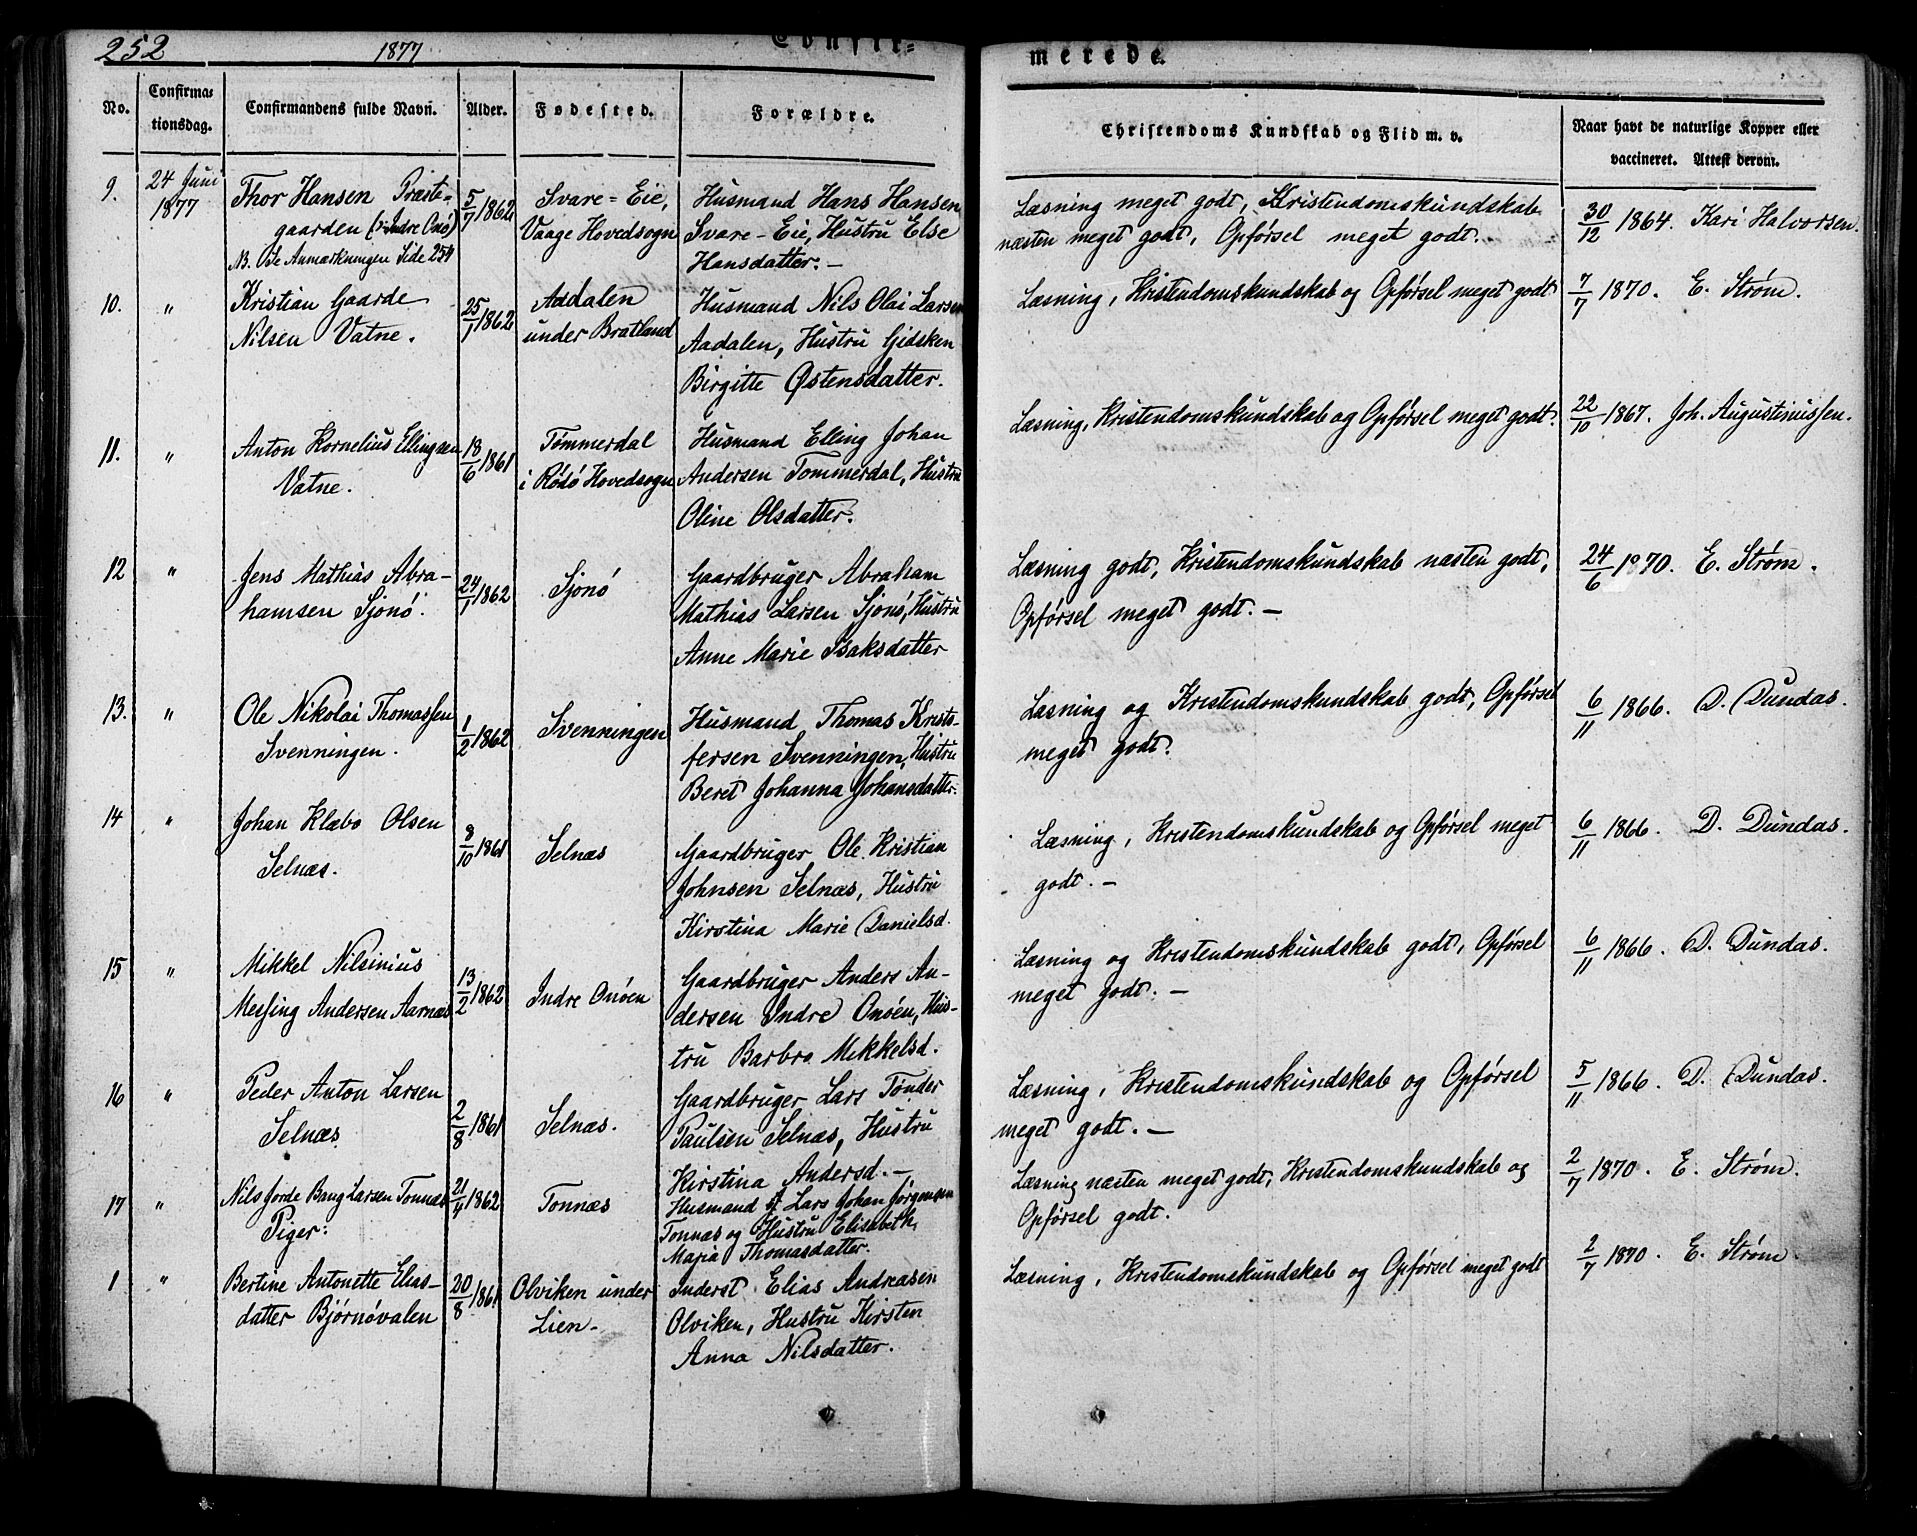 252 1877 Confir= merede.
No. Confirma= tionsdag. Confirmandens fulde Navn. Alder. Fødested. Forældre. Christendoms Kundskab og Flid m. v. Naar havt de naturlige Kopper eller vaccineret. Attest derom.
9. 24 Juni 1877 Thor Hansen Præste= 5/7 1862 Svare=Eie, Husmand Hans Hansen Læsning meget godt, Kristendomskundskab 30/12 1864. Kari Halvorsen.
gaarden (i Indre Onø) Vaage Hovedsogn Svare-Eie, Hustru Else næsten meget godt, Opførsel meget godt.
NB. Se Anmærkningen Side 254 Hansdatter.-
10. " Kristian Gaarde 25/1 1862 Aadalen Husmand Nils Olai Larsen Læsning, Kristendomskundskab og Opførsel meget godt 7/7 1870. E. Strøm.
Nilsen Vatne. under Bratland Aadalen, Hustru Gidsken
Birgitte Østensdatter.
11. " Anton Kornelius Ellingsen 18/6 1861 Tømmerdal Husmand Elling Johan Læsning, Kristendomskundskab og Opførsel meget godt. 22/10 1867. Joh. Augustinussen.
Vatne. i Rødø Hovedsogn Andersen Tømmerdal, Hustru
Oline Olsdatter.
12 " Jens Mathias Abra- 24/1 1862 Sjonø Gaardbruger Abraham Læsning godt, Kristendomskundskab næsten godt, 24/6 1870. E. Strøm.
hamsen Sjonø. Mathias Larsen Sjonø, Hustru Opførsel meget godt.-
Anne Marie Isaksdatter
13. " Ole Nikolai Thomassen 1/2 1862 Svenningen Husmand Thomas Kristo- Læsning og Kristendomskundskab godt, Opførsel 6/11 1866. D. Dundas.
Svenningen. fersen Svenningen, Hustru meget godt.
Beret Johanna Johansdatter.
14 " Johan Klæbo Olsen 8/10 1861 Selnæs Gaardbruger Ole Kristian Læsning, Kristendomskundskab og Opførsel meget 6/11 1866. D. Dundas.
Selnæs. Johnsen Selnæs, Hustru godt.-
Kirstina Marie Danielsd.
15 " Mikkel Nilsinius 13/2 1862 Indre Onøen Gaardbruger Anders An- Læsning og Kristendomskundskab godt, Opførsel 6/11 1866. D. Dundas.
Messing Andersen Aarnæs dersen Indre Onøen, Hus- meget godt.-
tru Barbro Mikkelsd.
16 " Peder Anton Larsen 2/8 1861 Selnæs. Gaardbruger Lars Tønder Læsning, Kristendomskundskab og Opførsel 5/11 1866. D. Dundas.
Selnæs Paulsen Selnæs, Hustru meget godt.-
Kirstina Andersd.-
17 " Nils Jorde Baug Larsen Tonnæs 21/4 1862 Tonnæs Husmand Lars Johan Jørgensen Læsning næsten meget godt, Kristendomskundskab og 2/7 1870. E. Strøm.
Piger: Tonnæs og Hustru Elisabeth Opførsel godt.
Maria Thomasdatter.
1 " Bertine Antonette Elias- 20/8 1861 Olviken under Inderst Elias Andreasen Læsning, Kristendomskundskab og Opførsel meget godt 2/7 1870. E. Strøm.
datter Bjørnøvalen Lien- Olviken, Hustru Kirsten
Anna Nilsdatter.